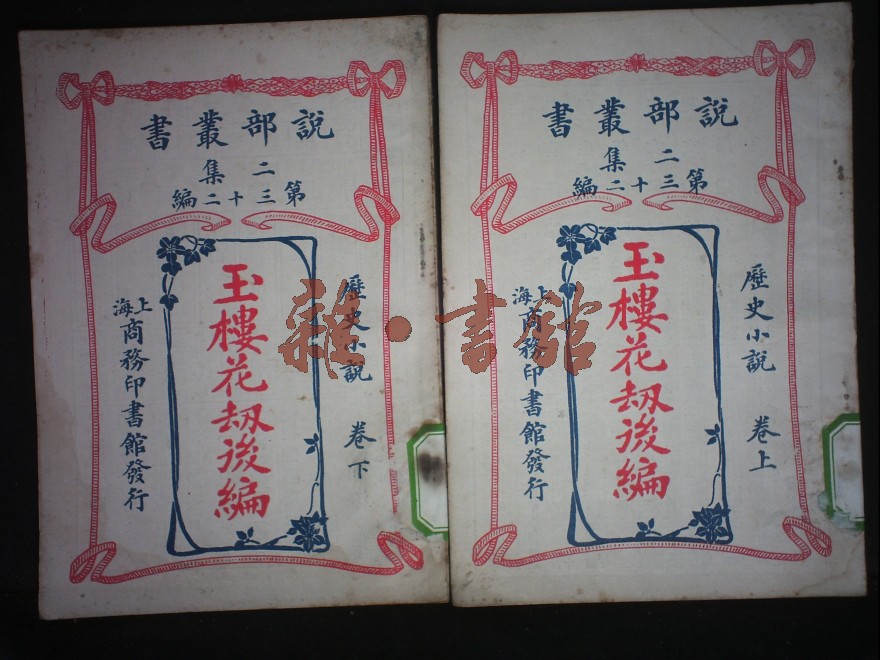 說部叢書
二集
第三十二編
歷史小說 卷上
玉樓花刼後編
上海商務印書館發行
說部叢書
二集
第三十二編
歷史小說 卷下
玉樓花刼後編
上海商務印書館發行
雜·書館